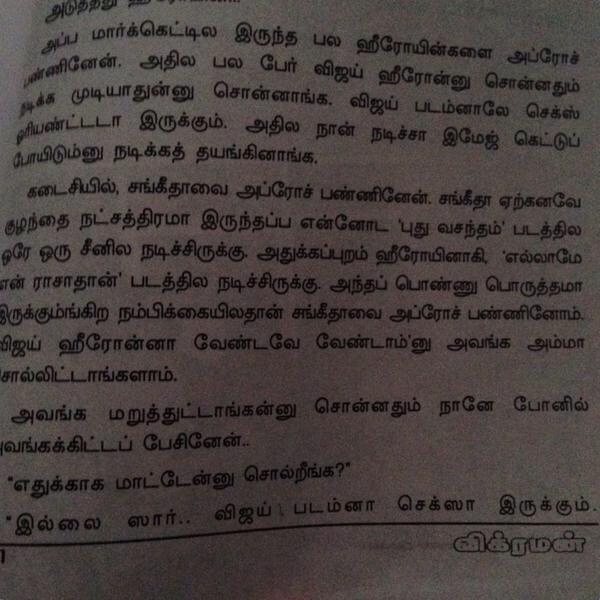 அப்ப மார்க்கெட்டில இருந்த பல ஹீரோயின்களை அப்ரோச்
பண்ணினேன். அதில பல பேர் விஜய் ஹீரோன்னு சொன்னதும்
நடிக்க முடியாதுன்னு சொன்னாங்க. விஜய் படம்னாலே செக்ஸ்
ஓரியண்ட்டடா இருக்கும். அதில நான் நடிச்சா இமேஜ் கெட்டுப்
போயிடும்னு நடிக்கத் தயங்கினாங்க.
கடைசியில், சங்கீதாவை அப்ரோச் பண்ணினேன். சங்கீதா ஏற்கனவே
குழந்தை நட்சத்திரமா இருந்தப்ப என்னோட 'புது வசந்தம்' படத்தில
ஒரே ஒரு சீனில நடிச்சிருக்கு. அதுக்கப்புறம் ஹீரோயினாகி, 'எல்லாமே
என் ராசாதான்' படத்தில நடிச்சிருக்கு. அந்தப் பொண்ணு பொருத்தமா
இருக்கும்ங்கிற நம்பிக்கையிலதான் சங்கீதாவை அப்ரோச் பண்ணினோம்.
விஜய் ஹீரோன்னா வேண்டவே வேண்டாம்'னு அவங்க அம்மா
சொல்லிட்டாங்களாம்.
அவங்க மறுத்துட்டாங்கன்னு சொன்னதும் நானே போனில்
அவங்கக்கிட்டப் பேசினேன்..
"எதுக்காக மாட்டேன்னு சொல்றீங்க?"
"இல்லை ஸார்.. விஜய் படம்னா செக்ஸா இருக்கும்.
விக்ரமன்